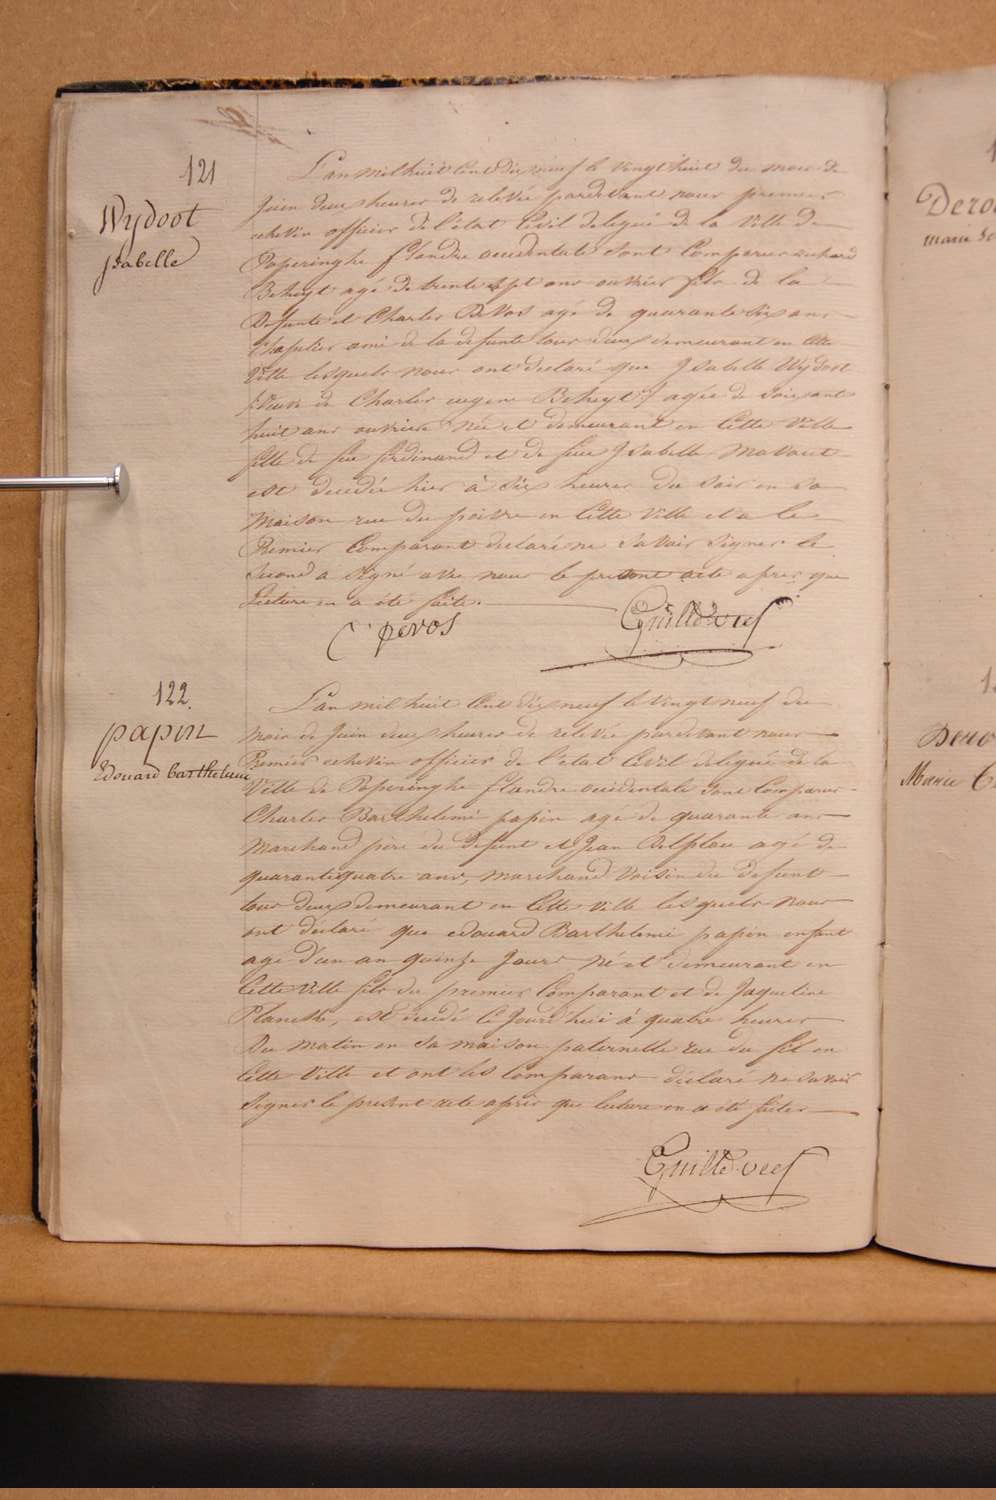 121
Wydoot
isabelle
L'an mil huit Cent dix neuf le vingt huit du mois de
juin deux heures de relevée pardevant nous premier
echevin officier de l'état Civil delegué de la Ville de
Poperinghe flandre occidentale sont Comparus
Beheyt agé de trente sept ans ouvrier fils de la
Defunte et Charles DeVos agé de quarante six ans
Chapelier ami de la defunte tous deux demeurant en Cette
Ville lesquels nous ont declaré que Isabelle Wydoot
/:Veuve de Charles eugene Beheyt:/ agée de Soixant
huit ans ouvriere Née et demeurant en Cette Ville
fille de feu ferdinand et de feue Isabelle
est decedée hier à Six heures du Soir en Sa
Maison rue du poivre en Cette Ville et a le
Premier Comparant declaré ne Savoir Signer le
Second a Signé avec nous le present acte apres que
Lecture en a été faite.
C: Devos
122.
papin
Edouard barthelemi
L'an mil huit Cent dix neuf le Vingt neuf du
mois de Juin deux heures de relevée pardevant nous
Premier echevin officier de l'état Civil delegué de la
Ville de Poperinghe flandre occidentale sont Comparus
Charles Barthelemi papin agé de quarante ans
Marchand père du Defunt et Jean Delplace agé de
quarante quatre ans, marchand Voisin du defunt
tous deux demeurant en Cette Ville lesquels nous
ont declaré que edouard Barthelemi papin enfant
agé d'un an quinze Jours Né et demeurant en
Cette Ville fils du premier Comparant et de Jaqueline
est décedé Ce Jourd'hui à quatre heures
Du Matin en Sa maison paternelle rue du fil en
Cette Ville et ont les Comparans déclaré ne Savoir
Signer le present acte apres que lecture en a été faite
Marie